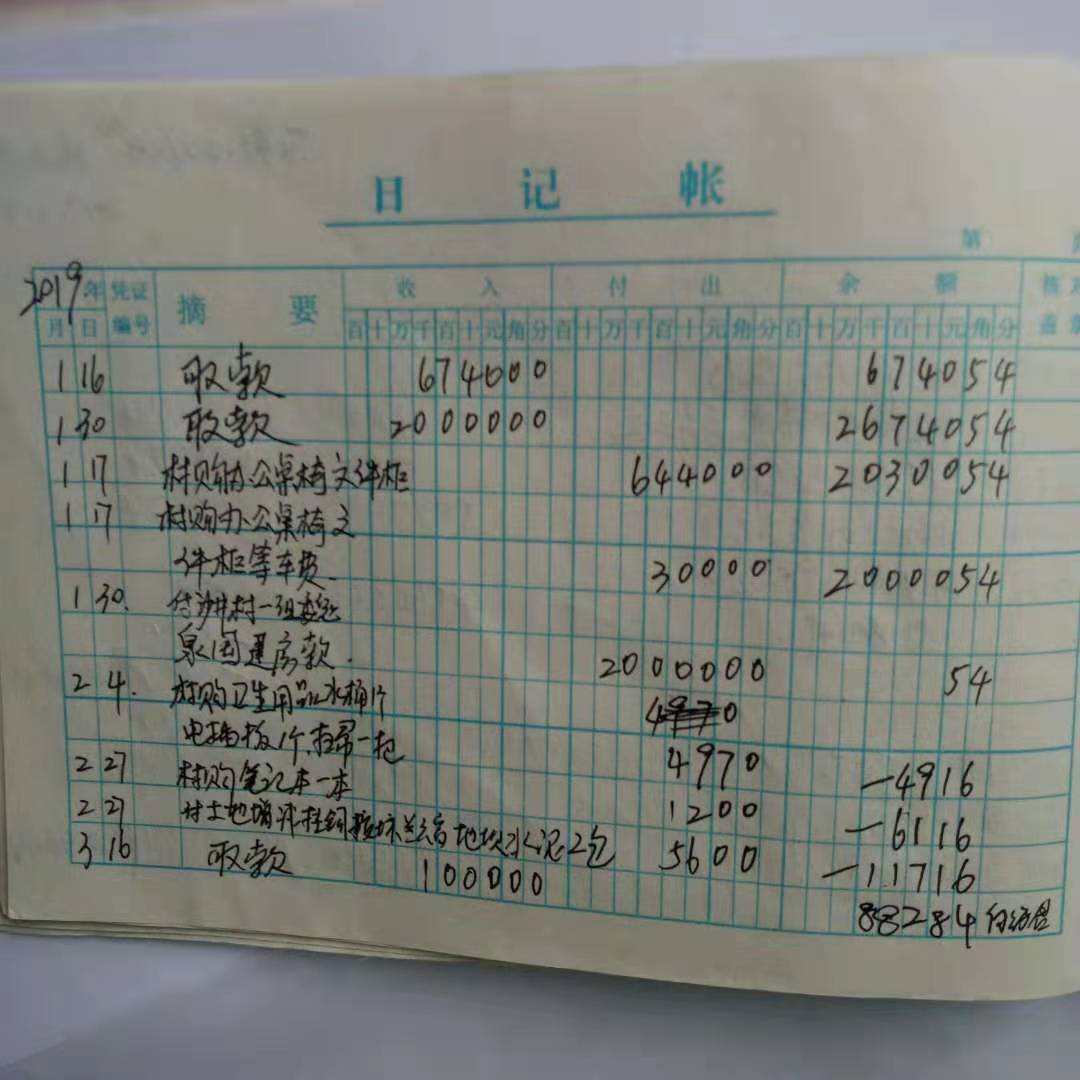 日记帐
第
2019年 凭证编号 摘要 收入 付出 余额 核对
月 日 百十万千百十元角分 百十万千百十元角分 百十万千百十元角分 盖
1 16 收款 674000 674054
1 30 收款 2000000 2674054
1 17 村购办公桌椅文件柜 644000 2030054
1 17 村购办公桌椅文
件柜等车费 30000 2000054
1 30. 付 村一组
泉国建房款. 2000000 54
2 4. 村购卫生用品水桶1个
电插板1个、扫帚一把 4970 -4916
2 27 村购笔记本一本 1200 -6116
2 27 村土地增 挂钩 地坝水泥2包 5600 -11716
3 16 收款 100000
88284